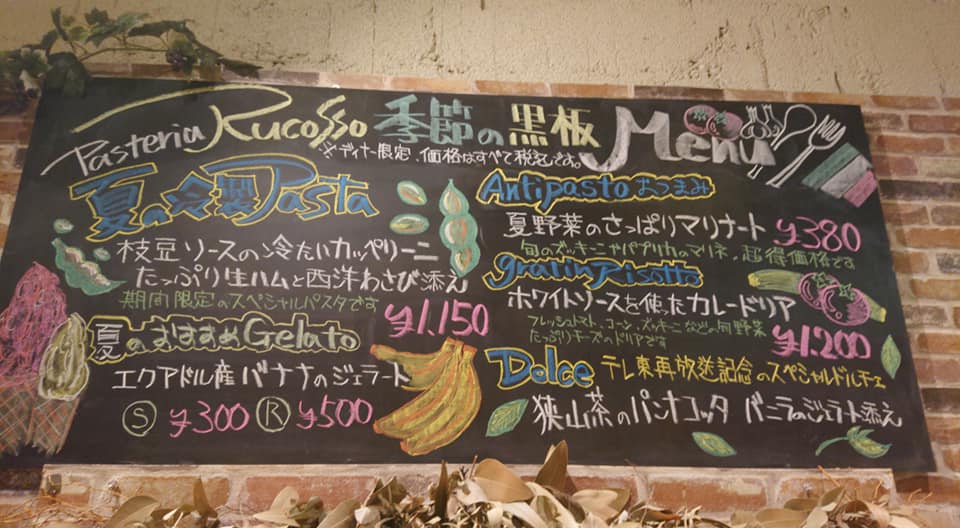 Pasteria Rucosso 季節の黒板 Menu
※ディナー限定、価格はすべて税込です。
夏の冷製Pasta
枝豆ソースの冷たいカッペリーニ
たっぷり生ハムと西洋わさび添え
期間限定のスペシャルパスタです
¥1,150
夏のおすすめGelato
エクアドル産バナナのジェラート
Ⓢ ¥300 Ⓡ ¥500
Antipasto おつまみ
夏野菜のさっぱりマリナート ¥380
旬のズッキーニやパプリカのマリネ、超得価格です
gratin Risotto
ホワイトソースを使ったカレードリア
フレッシュトマト、コーン、ズッキーニなどの旬野菜
たっぷりチーズのドリアです
¥1,200
Dolce テレ東再放送記念のスペシャルドルチェ
狭山茶のパンナコッタ バニラのジェラート添え